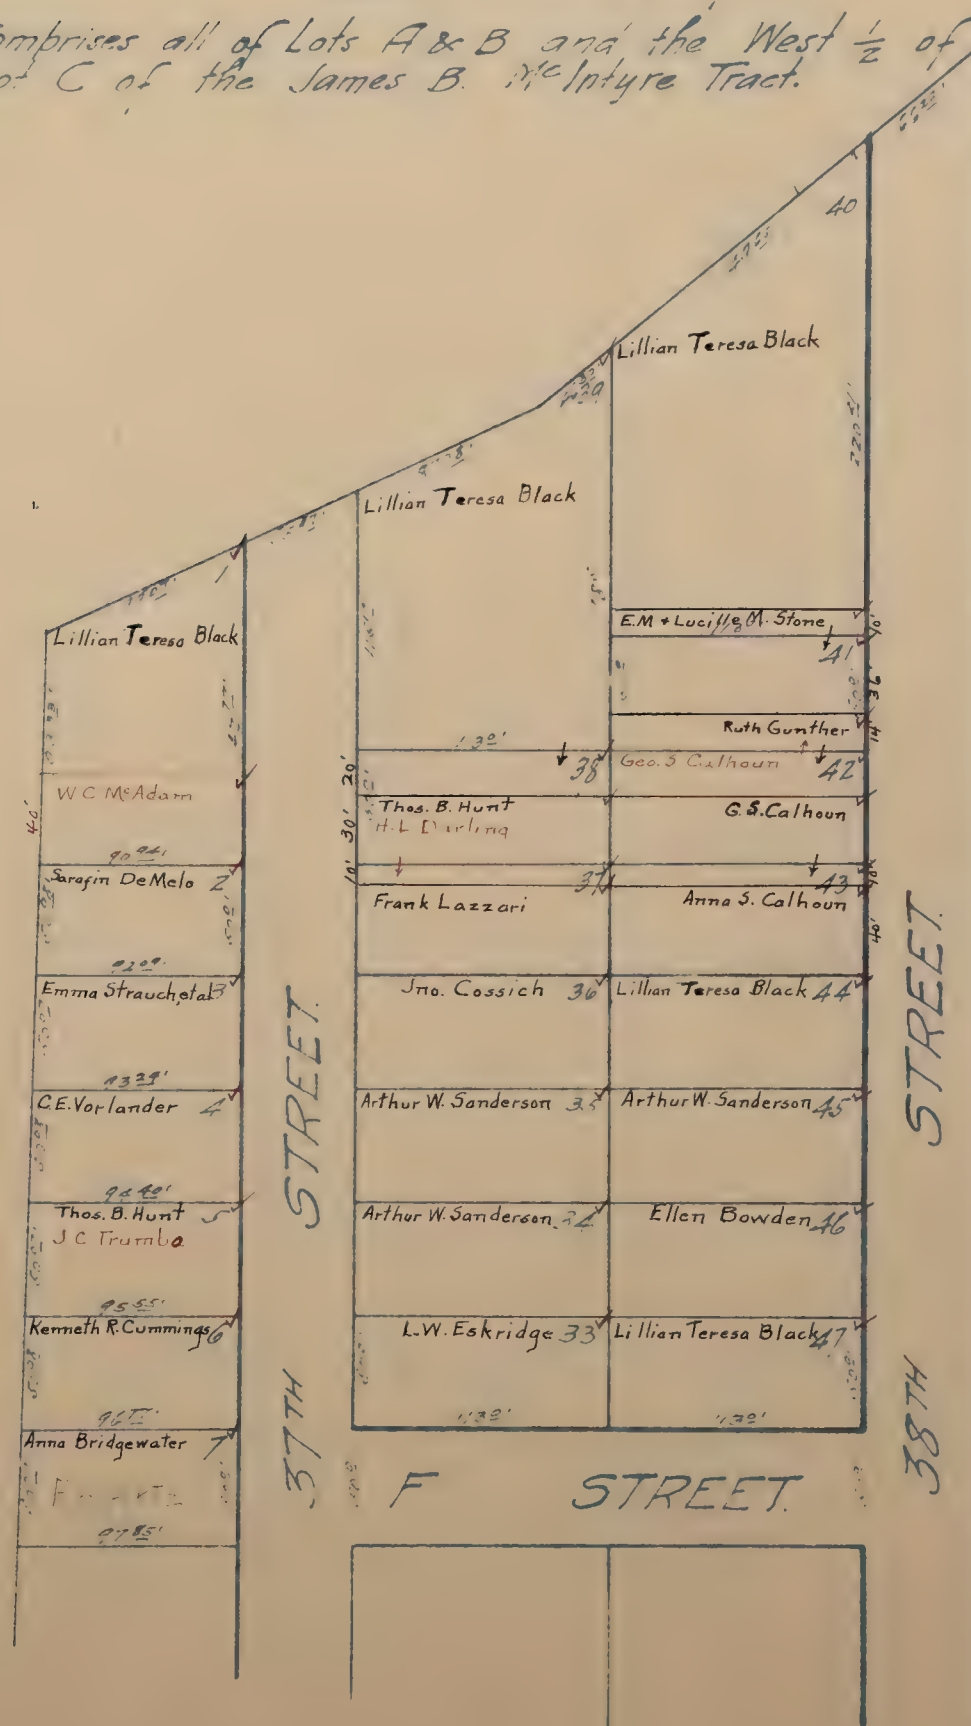 omprises all of Lots A & B and the West ½ of
ot C of the James B. McIntyre Tract.
40
Lillian Teresa Black
39
Lillian Teresa Black
1
Lillian Teresa Black
E.M + Lucille M. Stone
10'
41
36'
Ruth Gunther
14'
113 0'
38
Geo. S Calhoun
42
20'
W C McAdam
Thos. B. Hunt
G.S. Calhoun
H. L Darling
40'
30'
90 94'
Sarafin DeMelo 2
10'
37
43
Frank Lazzari
Anna S. Calhoun
40'
92 09'
Emma Strauch, etal 3
Jno. Cossich 36
Lillian Teresa Black 44
93 24'
C.E. Vorlander 4
Arthur W. Sanderson 35
Arthur W. Sanderson 45
94 40'
Thos. B. Hunt 5
J C Trumbo
Arthur W. Sanderson 34
Ellen Bowden 46
95 55'
Kenneth R. Cummings 6
L.W. Eskridge 33
Lillian Teresa Black 47
113 0'
113 0'
Anna Bridgewater 7
97 85'
37TH STREET.
F STREET.
38TH STREET.